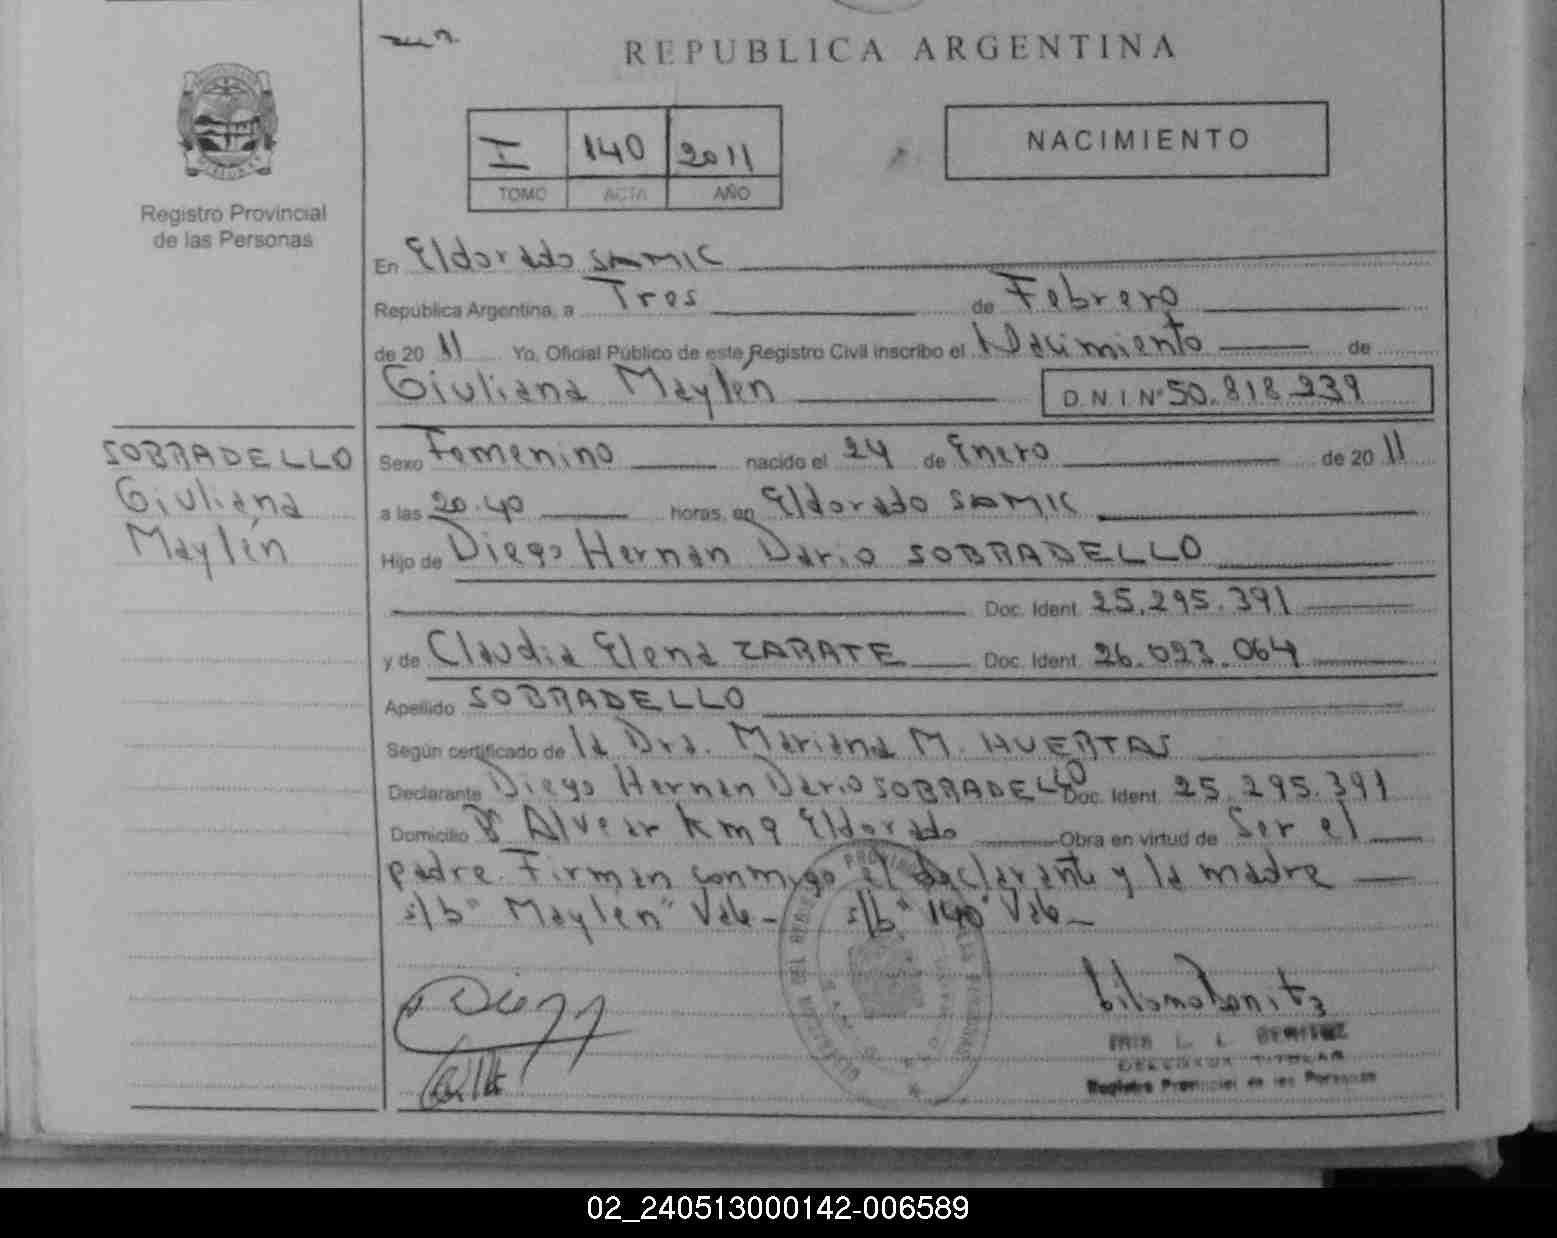 REPUBLICA ARGENTINA
I 140 2011
TOMO ACTA AÑO
NACIMIENTO
Registro Provincial
de las Personas
En Eldorado SAMIC
República Argentina, a Tres de Febrero
de 20 11 Yo, Oficial Público de este Registro Civil inscribo el Nacimiento de
Giuliana Maylén D.N.I. Nº 50.818.239
SOBRADELLO
Giuliana
Maylén
Sexo Femenino nacido el 24 de Enero de 20 11
a las 20.40 horas, en Eldorado SAMIC
Hijo de Diego Hernan Dario SOBRADELLO
Doc. Ident. 25.295.391
y de Claudia Elena ZARATE Doc. Ident. 26.093.064
Apellido SOBRADELLO
Según certificado de la Dra. Mariana M. HUERTAS
Declarante Diego Hernan Dario SOBRADELLO Doc. Ident. 25.295.391
Domicilio Bº Alvear Km 9 Eldorado Obra en virtud de Ser el
padre. Firman conmigo el declarante y la madre
s/b "Maylén" Vale - s/b "140" Vale -
Diego
L. L. BENITEZ
DELEGADA TITULAR
Registro Provincial de las Personas
02_240513000142-006589